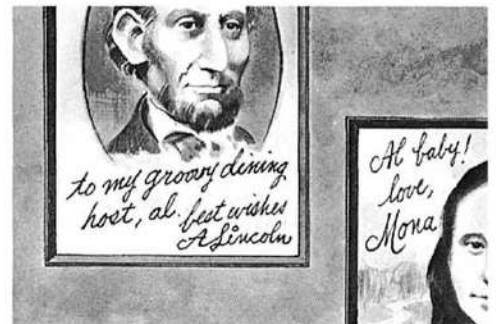 to my groovy dining
host, al. best wishes
A Lincoln
Al baby!
love,
Mona